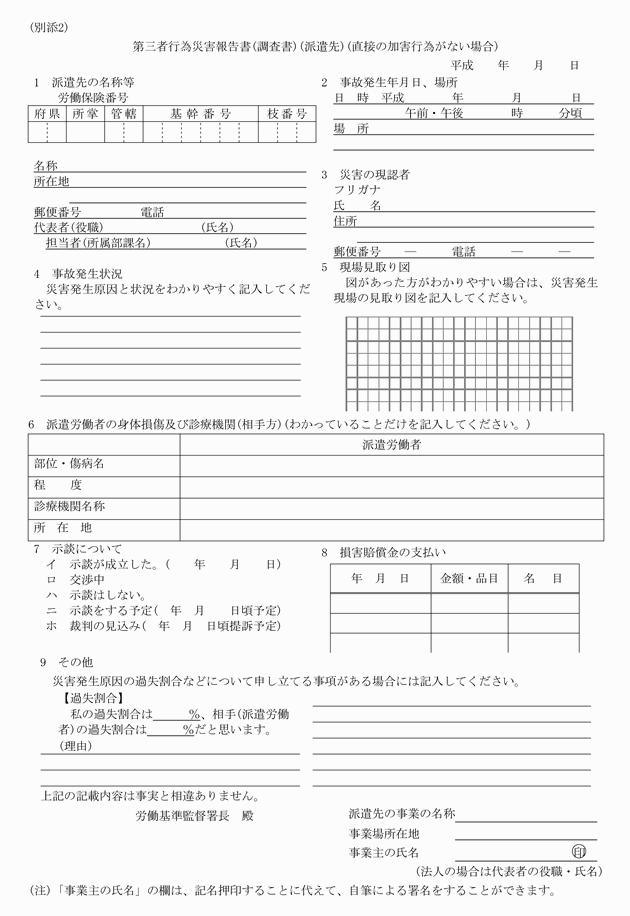 (別添2)
第三者行為災害報告書(調査書)(派遣先)(直接の加害行為がない場合)
平成　　年　　月　　日
1　派遣先の名称等
労働保険番号
府県　所掌　管轄　基幹番号　枝番号
名称
所在地
郵便番号　　　　　電話
代表者(役職)　　　　　　　　(氏名)
担当者(所属部課名)　　　　　　(氏名)
2　事故発生年月日、場所
日　時　平成　　　　年　　　　月　　　　日
午前・午後　　　　時　　　分頃
場　所
3　災害の現認者
フリガナ
氏　　名
住所
郵便番号　　―　　　電話　　　―　　　―
4　事故発生状況
災害発生原因と状況をわかりやすく記入してくだ
さい。
5　現場見取り図
図があった方がわかりやすい場合は、災害発生
現場の見取り図を記入してください。
6　派遣労働者の身体損傷及び診療機関(相手方)(わかっていることだけを記入してください。)
派遣労働者
部位・傷病名
程　　度
診療機関名称
所　在　地
7　示談について
イ　示談が成立した。(　　年　　月　　日)
ロ　交渉中
ハ　示談はしない。
ニ　示談をする予定(　年　月　　日頃予定)
ホ　裁判の見込み(　年　月　日頃提訴予定)
8　損害賠償金の支払い
年　月　日　金額・品目　名　目
9　その他
災害発生原因の過失割合などについて申し立てる事項がある場合には記入してください。
【過失割合】
私の過失割合は　　　%、相手(派遣労働
者)の過失割合は　　　%だと思います。
(理由)
上記の記載内容は事実と相違ありません。
労働基準監督署長　殿
派遣先の事業の名称
事業場所在地
事業主の氏名　　　　　　　　㊞
(法人の場合は代表者の役職・氏名)
(注)「事業主の氏名」の欄は、記名押印することに代えて、自筆による署名をすることができます。